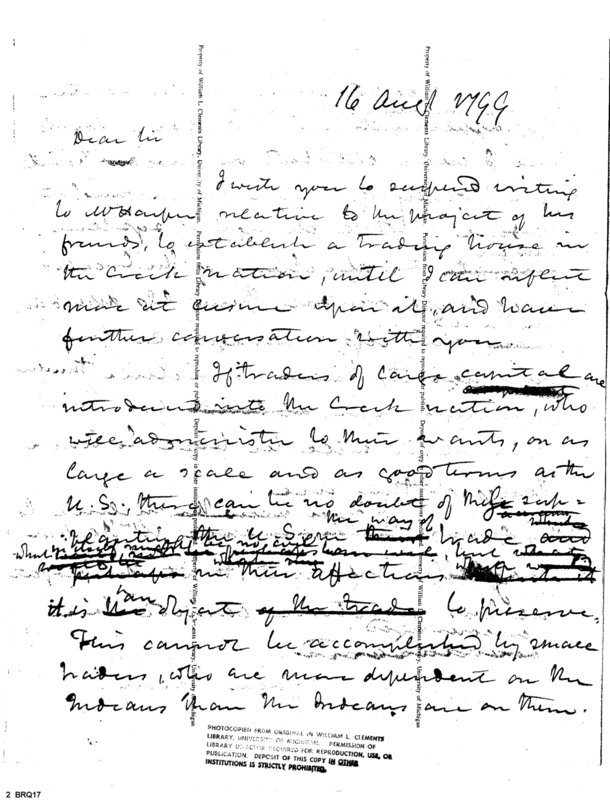 16 Augt 1799
Dear Sir
I wish you to suspend writing
to Mr Harper relative to the project of his
friends, to establish a trading house in
the Creek nation, until I can reflect
more at leisure upon it, and have
further conversation with you
If traders of large capital are
introduced into the Creek nation, who
will administer to their wants, on as
large a scale and as good terms as the
U.S., there can be no doubt of their sup=
planting the U.S. in the way of trade and
in their affections
it is an object of the trade to preserve.
This cannot be accomplished by small
traders, who are more dependent on the
Indians than the Indians are on them.
Property of William L. Clements Library, University of Michigan. Permission from Library Director required to reproduce or publish. Deposit of copy in other institutions prohibited.
PHOTOCOPIED FROM ORIGINAL IN WILLIAM L. CLEMENTS
LIBRARY, UNIVERSITY OF MICHIGAN. PERMISSION OF
LIBRARY DIRECTOR REQUIRED FOR REPRODUCTION, USE, OR
PUBLICATION. DEPOSIT OF THIS COPY IN OTHER
INSTITUTIONS IS STRICTLY PROHIBITED.
2 BRQ17